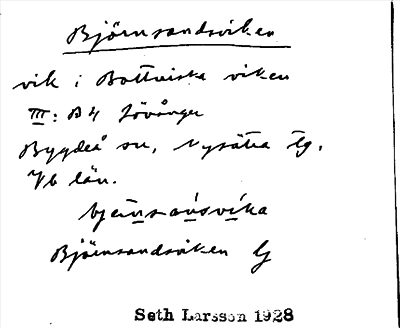 Björnsandsviken
vik i Bottniska viken
III: B4 Lövånger
Bygdeå sn, Nysätra tg.
Vb län.
bjɛ́ɳsanśvika
Björnsandviken G
Seth Larsson 1928